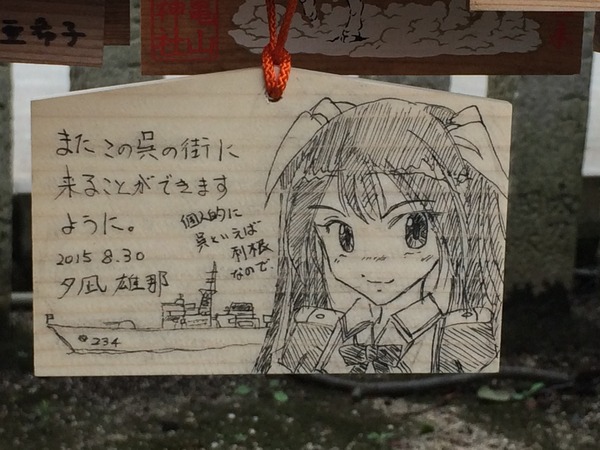 亜希子
亀山
神社
また この呉の街に
来ることができます
ように。
2015 8.30
夕凪 雄那
個人的に
呉といえば
利根
なので
234